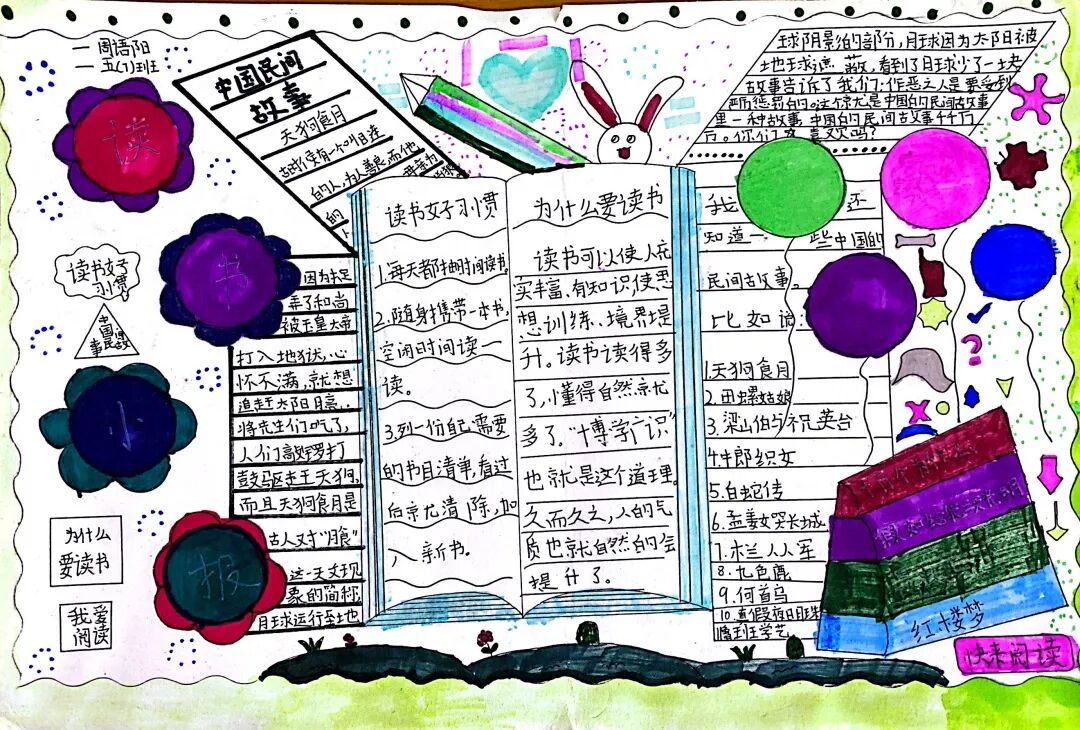 周语阳
五(7)班
读
书
小
报
读书好
习惯
中国民间
故事
为什么
要读书
我爱
阅读
中国民间
故事
天狗食月
古时候有一个叫目连
的人,为人善良,而他
的
因为目连
弄了和尚
被玉皇大帝
打入地狱,心
怀不满,就想
追赶太阳月亮..
将先生们吃了,
人们敲锣打
鼓驱走天狗,
而且天狗食月是
古人对“月食”
这一天文现
象的简称;
月球运行至地
球阴影的部分,月球因为太阳被
地球遮蔽,看到了月球少了一块
故事告诉了我们:作恶之人是要受到
严厉惩罚的。这个就是中国的民间故事
里一种故事,中国的民间故事千千万
万。你们喜欢吗?
读书好习惯
1.每天都抽时间读书。
2.随身携带一本书,
空闲时间读一
读。
3.列一份自己需要
的书目清单,看过
后就清除,加
入新书。
为什么要读书
读书可以使人充
实丰富、有知识,使思
想训练、境界提
升。读书读得多
了,懂得自然就
多了,“博学广识”
也就是这个道理。
久而久之,人的气
质也就自然的会
提升了。
我 还
知道一 些中国的
民间故事。
比如说:
1.天狗食月
2.田螺姑娘
3.梁山伯与祝英台
4.牛郎织女
5.白蛇传
6.孟姜女哭长城
7.木兰从军
8.九色鹿
9.何首乌
10.真假夜明珠
假如给我三天光明
红楼梦
快来阅读